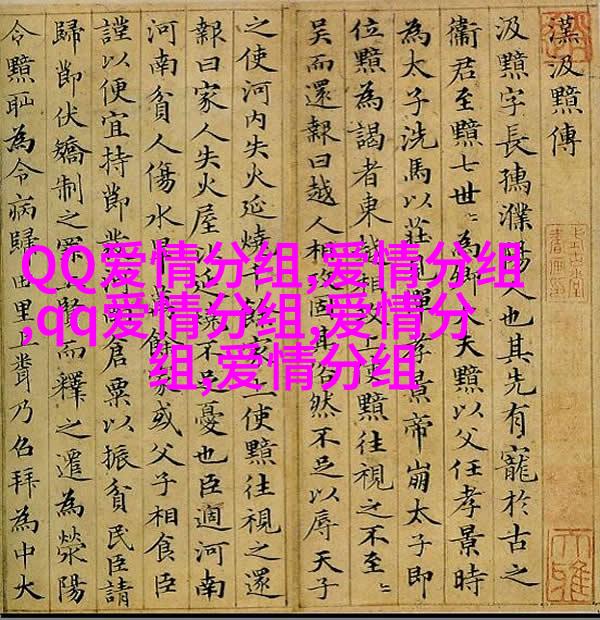 漢汲黯傳
汲黯字長孺濮陽人也其先有寵於古之
衛君至黯七世〻為卿大夫黯以父任孝景時
為太子洗馬以莊見憚孝景帝崩太子即
位黯為謁者東越相攻上使黯往視之不至〻
吳而還報曰越人相攻固其俗然不足以辱天子
之使河內失火延燒千餘家上使黯往視之還
報曰家人失火屋比延燒不足憂也臣適河南
河南貧人傷水旱萬餘家或父子相食臣
謹以便宜持節發河南倉粟以振貧民臣請
歸節伏矯制之罪上賢而釋之遷為滎陽
令黯恥為令病歸田里上乃召拜為中大
QQ爱情分组,爱情分组
,qq爱情分组,爱情分
组,爱情分组